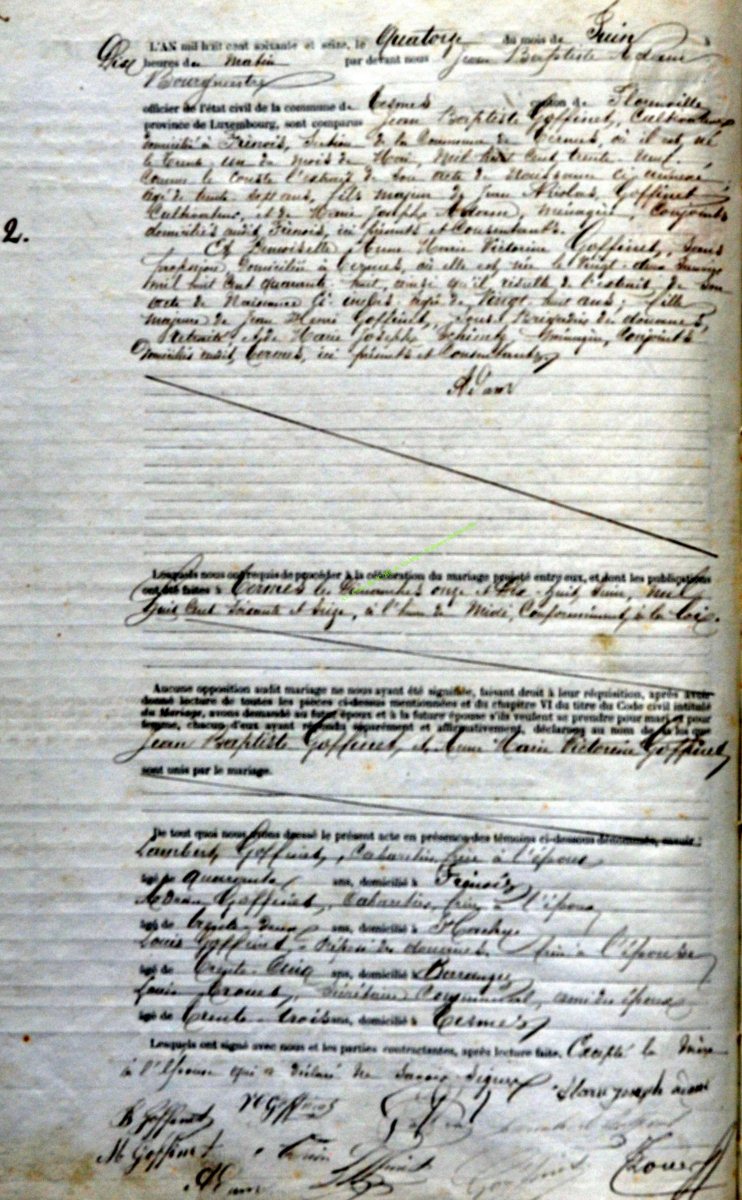 L'AN mil huit cent soixante et seize, le Quatorze du mois de Juin à
Dix heures du matin par devant nous Jean Baptiste Adam
Bourgmestre
officier de l'état civil de la commune de Termes canton de Florenville
province de Luxembourg, sont comparus Jean Baptiste Goffinet, Cultivateur
domicilié à Frenois, Section de la Commune de Termes, où il est né
le trente un du mois de Mai, mil huit Cent trente neuf,
Comme le Constate l'extrait de son acte de Naissance ci annexé
âgé de trente sept ans, fils majeur de Jean Nicolas Goffinet
Cultivateur, et de Marie Josephe Adam, ménagère, Conjoints
domiciliés audit Frenois, ici présents et Consentants.
2.
Et Demoiselle Anne Marie Victorine Goffinet, Sans
profession domiciliée à Termes, où elle est née le Vingt deux
mil huit Cent quarante huit, ainsi qu'il résulte de l'extrait de son
acte de Naissance âgée de Vingt huit ans, fille
majeure de Jean Henri Goffinet, Sous Brigadier de douanes,
Retraité et de Marie Joseph Ménagère, Conjoints
domiciliés audit Termes, ici présents et Consentants
Adam
Lesquels nous ont requis de procéder à la célébration du mariage projeté entre eux, et dont les publications
ont été faites à Termes les Dimanches onze et Dix-huit Juin, mil
huit Cent Soixante et Seize, à l'heure de Midi, Conformément à la loi.
Aucune opposition audit mariage ne nous ayant été signifiée, faisant droit à leur réquisition, après avoir
donné lecture de toutes les pièces ci-dessus mentionnées et du chapitre VI du titre du Code civil intitulé
du Mariage, avons demandé au futur époux et à la future épouse s'ils veulent se prendre pour mari et pour
femme, chacun d'eux ayant répondu séparément et affirmativement, déclarons au nom de la loi que
Jean Baptiste Goffinet, et Anne Marie Victorine Goffinet
sont unis par le mariage.
De tout quoi nous avons dressé le présent acte en présence des témoins ci-dessous dénommés, savoir:
Lambert Goffinet, Cabaretier, frère à l'époux
âgé de quarante ans, domicilié à Frenois
Adam Goffinet, Cabaretier, frère à l'époux
âgé de trente-deux ans, domicilié à Hachy
Louis Goffinet, Préposé des douanes, frère à l'épouse
âgé de trente-Cinq ans, domicilié à
Louis Secrétaire Communal, ami des époux
âgé de trente-trois ans, domicilié à Termes
Lesquels ont signé avec nous et les parties contractantes, après lecture faite. Excepté la Mère
à l'épouse qui a déclaré ne Savoir Signer
B Goffinet V Goffinet
M Goffinet Goffinet Goffinet
Adam